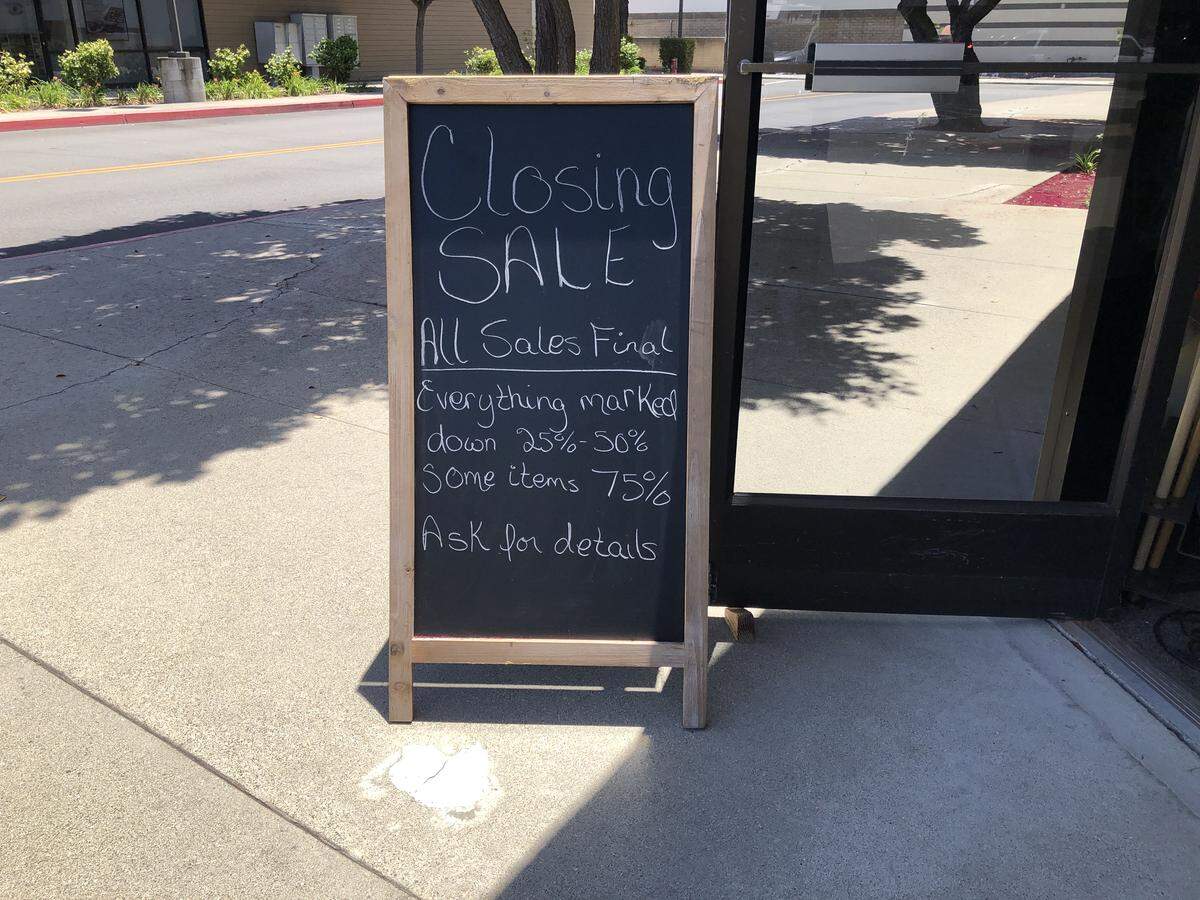 Closing
SALE
All Sales Final
Everything marked
down 25%-50%
Some items 75%
Ask for details